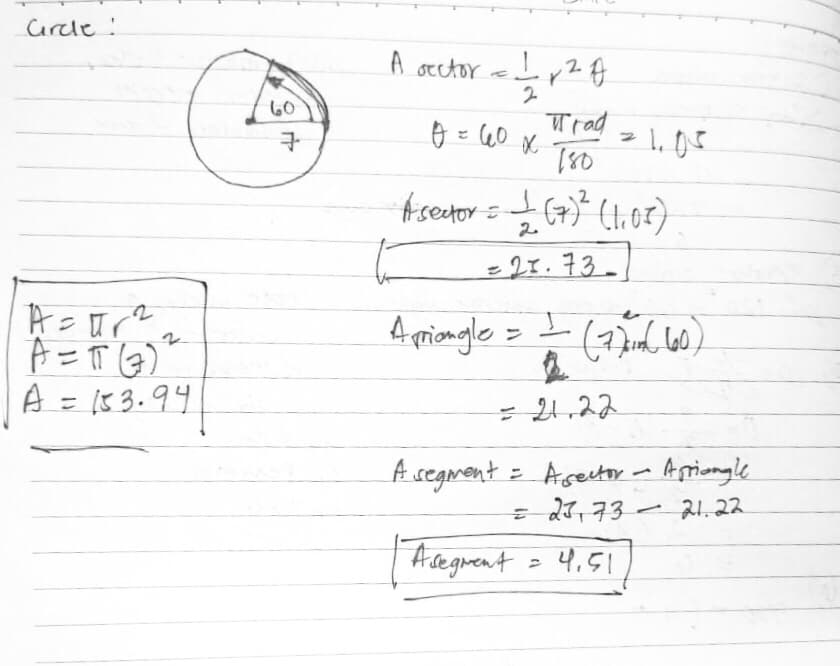 Circle :
60
7
A sector = 1/2 r² θ
θ = 60 × π rad/180 = 1.05
A sector = 1/2 (7)² (1.05)
= 25.73
A = π r²
A = π (7)²
A = 153.94
A triangle = 1/2 (7)² sin(60)
= 21.22
A segment = A sector - A triangle
= 25.73 - 21.22
A segment = 4.51